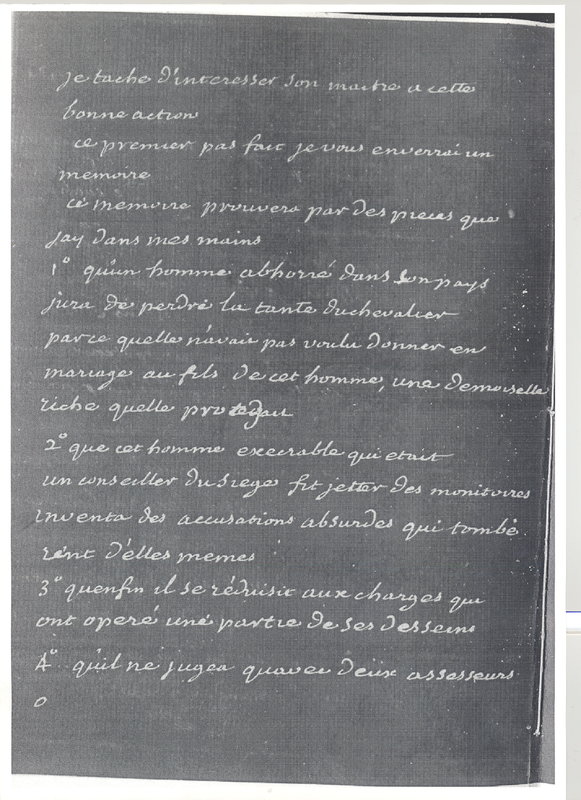 je tache d'interesser son maitre a cette
bonne action
ce premier pas fait je vous enverrai un
memoire
ce memoire prouvera par des pieces que
jay dans mes mains
1° qu'un homme abhorré dans son pays
jura de perdre la tante duchevalier
parce quelle n'avait pas voulu donner en
mariage au fils de cet homme, une demoiselle
riche quelle protegait
2° que cet homme execrable qui etait
un conseiller du siege fit jetter des monitoires
inventa des accusations absurdes qui tombè
rent d'elles memes
3° quenfin il se réduisit aux charges qui
ont operé une partie de ses desseins
4° qu'il ne jugea quavec deux assesseurs